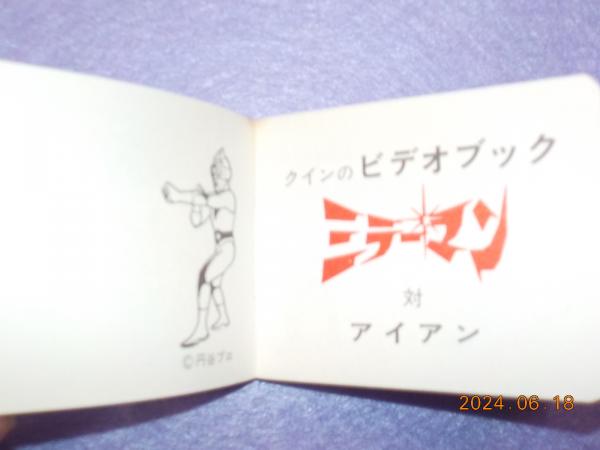 ©円谷プロ
クインのビデオブック
ミラーマン
対
アイアン
2024.06.18